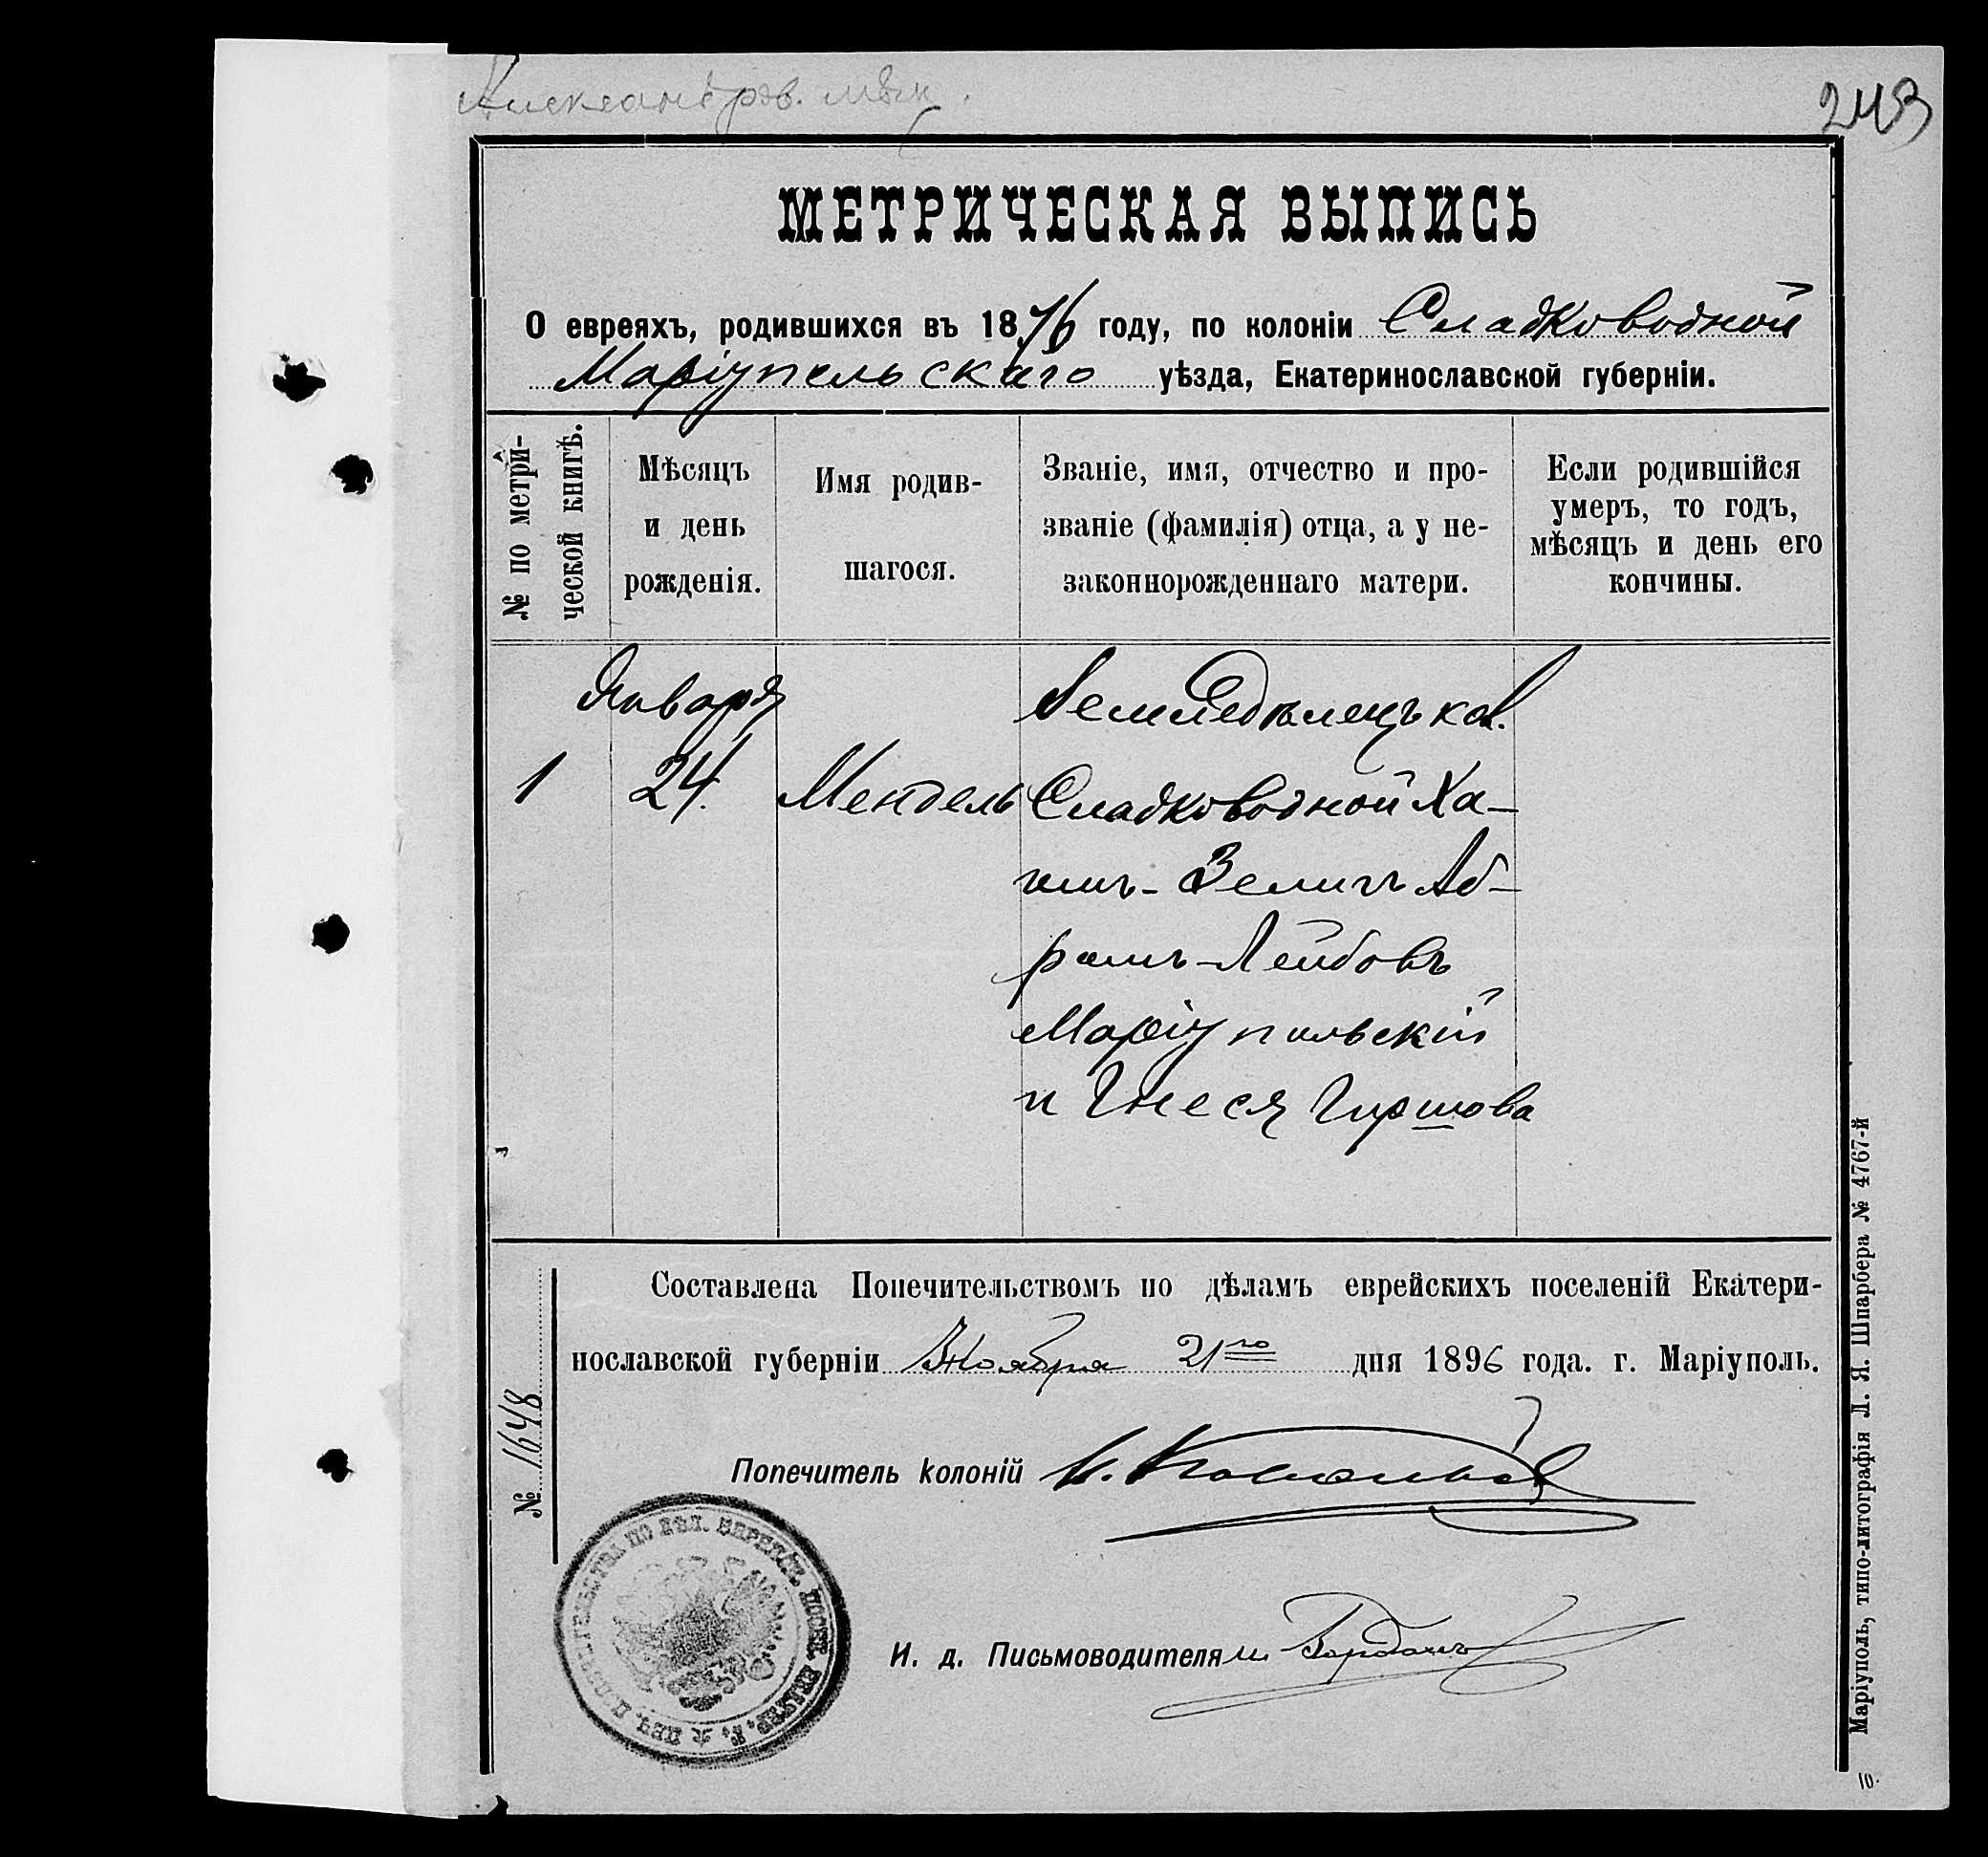 Александров. мѣщ.
243
МЕТРИЧЕСКАЯ ВЫПИСЬ
О евреяхъ, родившихся въ 1876 году, по колоніи Сладководной
Маріупельскаго уѣзда, Екатеринославской губерніи.
№ по метри-
ческой книгѣ.
Мѣсяцъ
и день
рожденія.
Имя родив-
шагося.
Званіе, имя, отчество и про-
званіе (фамилія) отца, а у не-
законнорожденнаго матери.
Если родившійся
умеръ, то годъ,
мѣсяцъ и день его
кончины.
1
Января
24.
Мендель
Земледѣлецъ кол.
Сладководной Ха-
имъ-Зелигъ Аб-
рамъ-Лейбовъ
Маріупольскій
и Гнеся Гиршова
Составлена Попечительствомъ по дѣламъ еврейскихъ поселеній Екатери-
нославской губерніи Ноября 21го дня 1896 года. г. Маріуполь.
№ 1648
Попечитель колоній
И. д. Письмоводителя
ПЕЧ. ПОПЕЧИТЕЛЬСТВА ПО ДѢЛ. ЕВРЕЙСК. ПОСЕЛ. ЕКАТЕР. Г.
Маріуполь, типо-литографія Л. Я. Шпарбера № 4767-й
10.